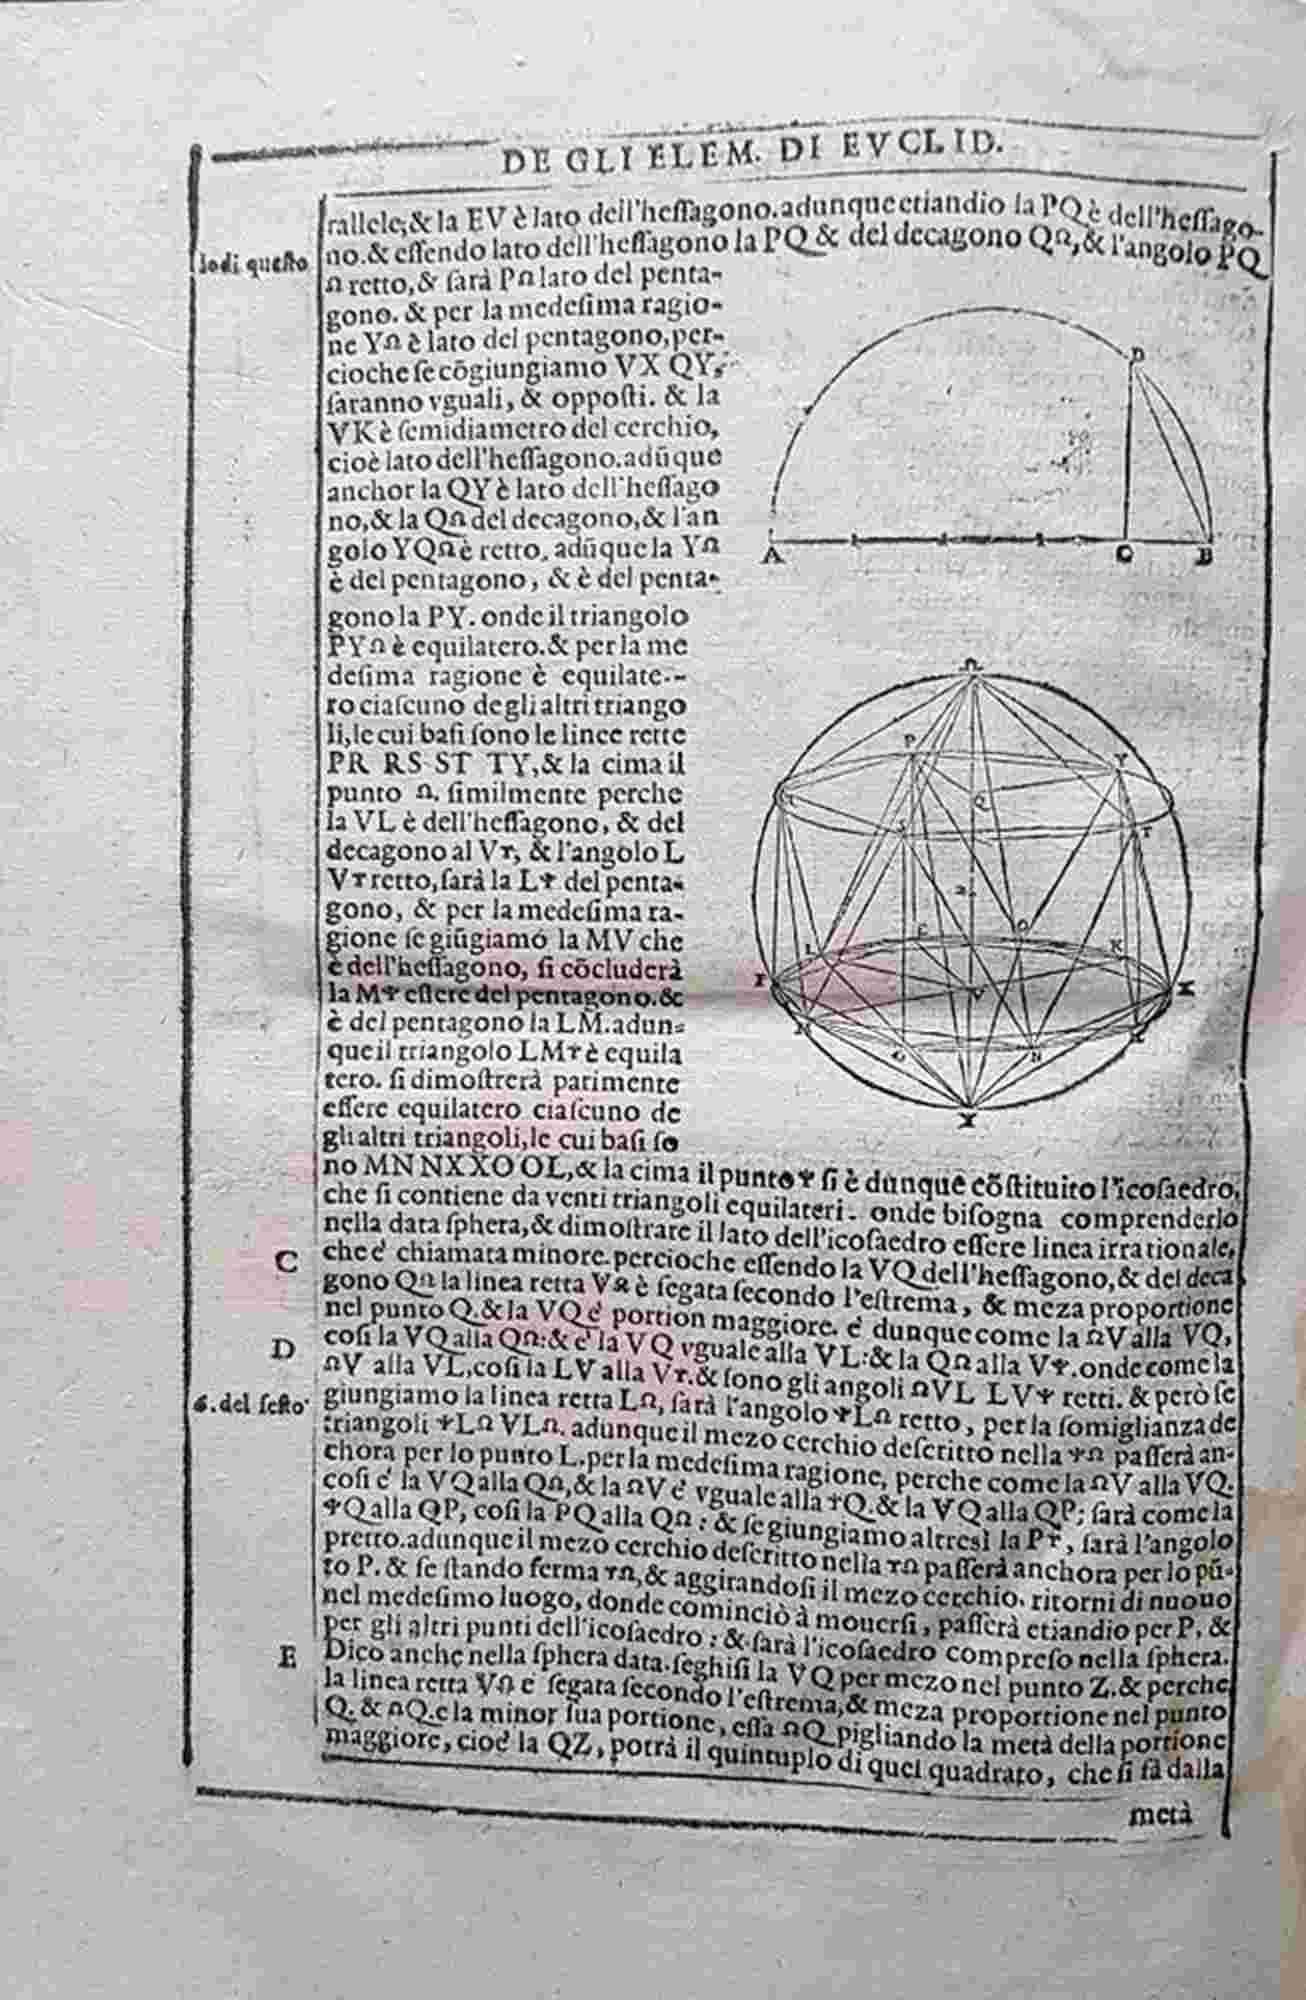 DE GLI ELEM. DI EVCLID.
rallele;& la EV è lato dell'heſſagono.adunque etiandio la PQ è dell'heſſago-
lo di queſto
no.& eſſendo lato dell'heſſagono la PQ & del decagono QΩ,& l'angolo PQ
Ω retto,& ſarà PΩ lato del penta-
gono. & per la medeſima ragio-
ne YΩ è lato del pentagono,per-
cioche ſe cõgiungiamo VX QY,
ſaranno vguali, & oppoſti. & la
VK è ſemidiametro del cerchio,
cioè lato dell'heſſagono.adũque
anchor la QY è lato dell'heſſago
no,& la QΩ del decagono,& l'an
golo YQΩ è retto. adũque la YΩ
è del pentagono, & è del penta-
gono la PY. onde il triangolo
PYΩ è equilatero.& per la me
deſima ragione è equilate--
ro ciaſcuno de gli altri triango
li,le cui baſi ſono le linee rette
PR RS ST TY,& la cima il
punto Ω. ſimilmente perche
la VL è dell'heſſagono, & del
decagono al VⲮ, & l'angolo L
VⲮ retto, ſarà la LⲮ del penta-
gono, & per la medeſima ra-
gione ſe giũgiamo la MV che
è dell'heſſagono, ſi cõcluderà
la MⲮ eſſere del pentagono.&
è del pentagono la LM.adun-
que il triangolo LMⲮ è equila
tero. ſi dimoſtrerà parimente
eſſere equilatero ciaſcuno de
gli altri triangoli,le cui baſi ſo
no MN NX XO OL,& la cima il punto Ⲯ ſi è dunque cõſtituito l'icoſaedro,
che ſi contiene da venti triangoli equilateri. onde biſogna comprenderlo
nella data ſphera,& dimoſtrare il lato dell'icoſaedro eſſere linea irrationale,
C
che è chiamata minore.percioche eſſendo la VQ dell'heſſagono,& del deca
gono QΩ la linea retta VΩ è ſegata ſecondo l'eſtrema, & meza proportione
nel punto Q.& la VQ è portion maggiore. è dunque come la ΩV alla VQ,
D
coſi la VQ alla QΩ:& è la VQ vguale alla VL:& la QΩ alla VⲮ.onde come la
ΩV alla VL,coſi la LV alla VⲮ.& ſono gli angoli ΩVL LVⲮ retti. & però ſe
8. del ſeſto
giungiamo la linea retta LΩ, ſarà l'angolo ⲮLΩ retto, per la ſomiglianza de
triangoli ⲮLΩ VLΩ. adunque il mezo cerchio deſcritto nella ⲮΩ paſſerà an-
chora per lo punto L.per la medeſima ragione, perche come la ΩV alla VQ.
coſi è la VQ alla QΩ,& la ΩV è vguale alla ⲮQ.& la VQ alla QP; ſarà come la
ⲮQ alla QP, coſi la PQ alla QΩ: & ſe giungiamo altresì la PⲮ, ſarà l'angolo
pretto.adunque il mezo cerchio deſcritto nella ⲮΩ paſſerà anchora per lo pũ-
to P. & ſe ſtando ferma ⲮΩ,& aggirandoſi il mezo cerchio. ritorni di nuouo
nel medeſimo luogo, donde cominciò à mouerſi, paſſerà etiandio per P, &
per gli altri punti dell'icoſaedro: & ſarà l'icoſaedro compreſo nella ſphera.
E
Dico anche nella ſphera data.ſeghiſi la VQ per mezo nel punto Z.& perche
la linea retta VΩ è ſegata ſecondo l'eſtrema,& meza proportione nel punto
Q. & ΩQ.e la minor ſua portione, eſſa ΩQ pigliando la metà della portione
maggiore, cioè la QZ, potrà il quintuplo di quel quadrato, che ſi fà dalla
metà
D
A
C
B
Ω
P
Y
Q
S
T
L
K
V
M
O
N
X